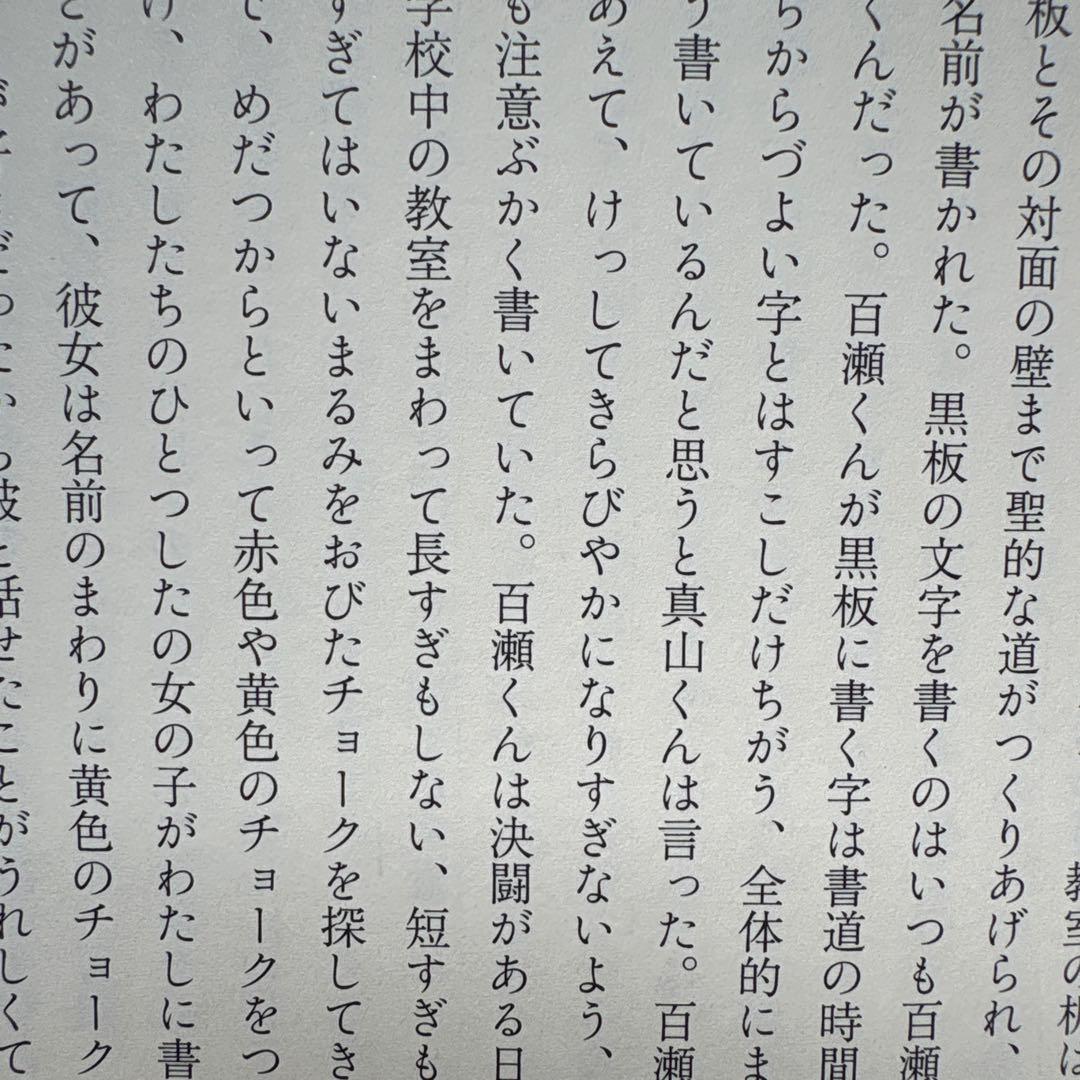 教室の机は
板とその対面の壁まで聖的な道がつくりあげられ、
名前が書かれた。黒板の文字を書くのはいつも百瀬
くんだった。百瀬くんが黒板に書く字は書道の時間
ちからづよい字とはすこしだけちがう、全体的にま
う書いているんだと思うと真山くんは言った。百瀬
あえて、けっしてきらびやかになりすぎないよう、
も注意ぶかく書いていた。百瀬くんは決闘がある日
学校中の教室をまわって長すぎもしない、短すぎも
すぎてはいないまるみをおびたチョークを探してき
で、めだつからといって赤色や黄色のチョークをつ
け、わたしたちのひとつしたの女の子がわたしに書
とがあって、彼女は名前のまわりに黄色のチョーク
彼と話せたことがうれしくて